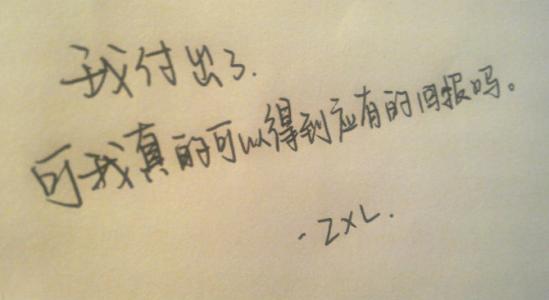 我付出了.
可我真的可以得到应有的回报吗。
·ZXL.